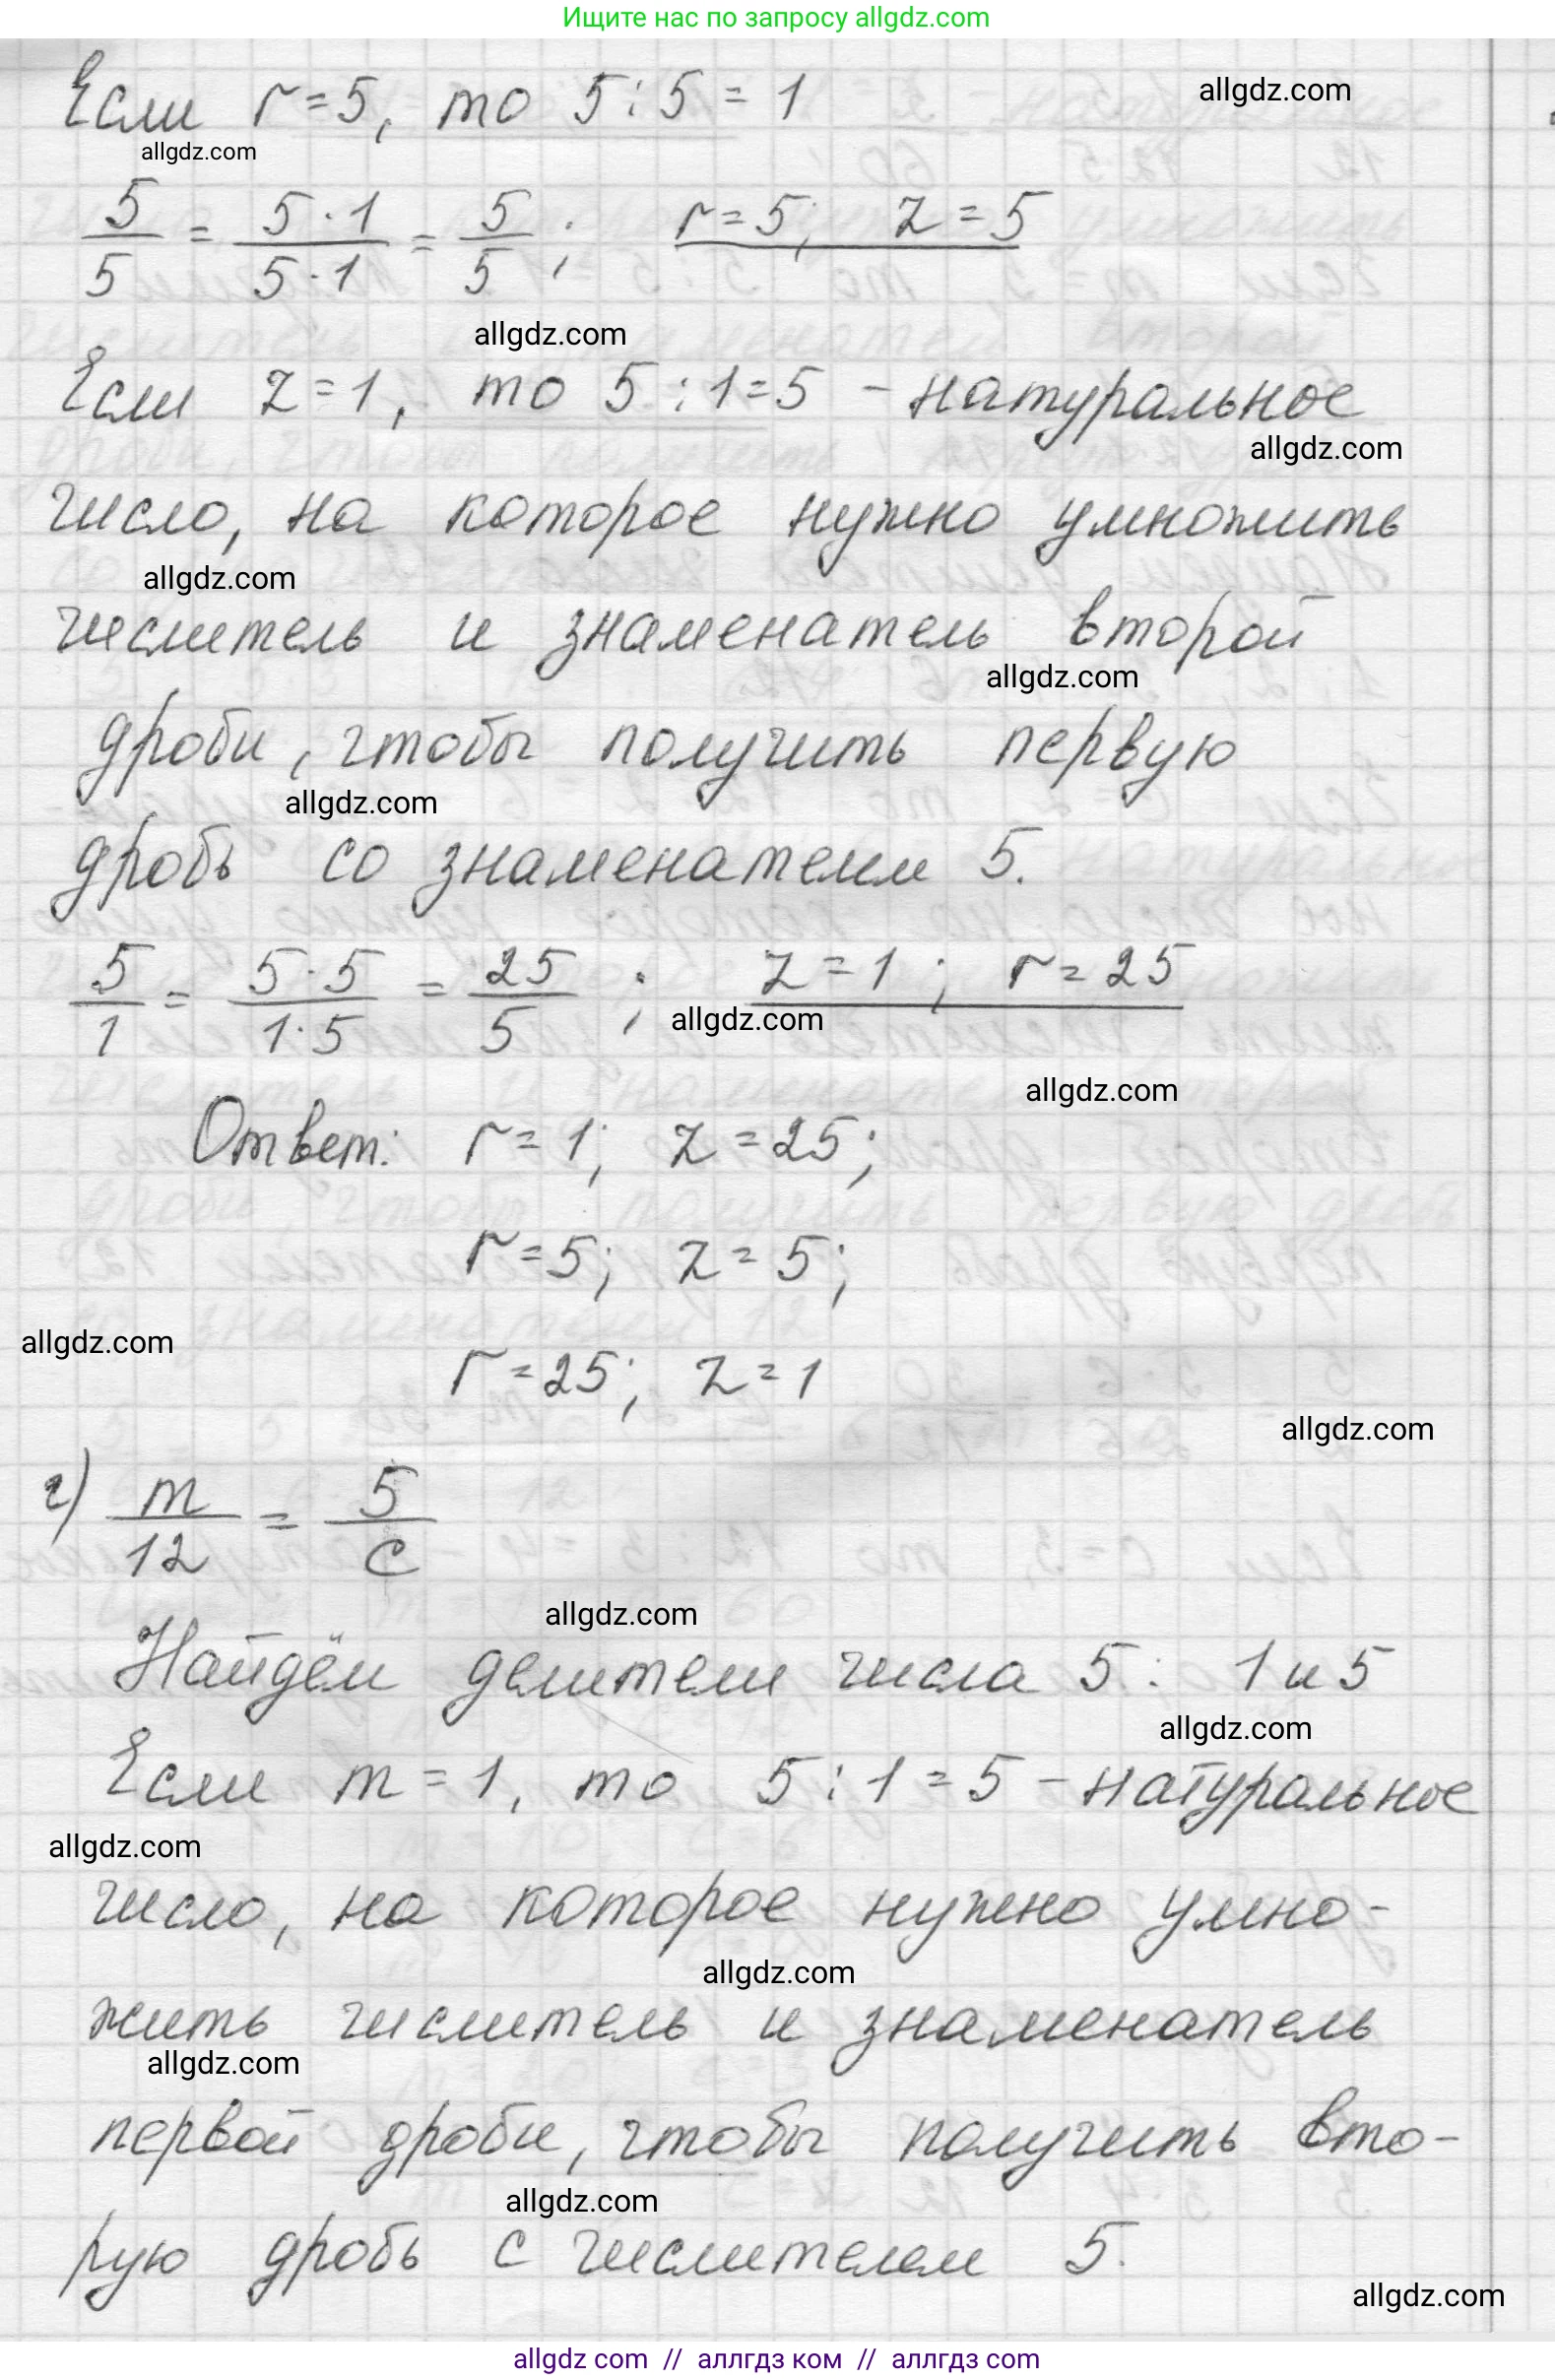 Ищите нас по запросу allgdz.com
Если r=5, то 5:5=1
allgdz.com
allgdz.com
5/5 = 5·1/5·1 = 5/5; r=5; z=5
allgdz.com
Если z=1, то 5:1=5 – натуральное
allgdz.com
число, на которое нужно умножить
allgdz.com
числитель и знаменатель второй
allgdz.com
дроби, чтобы получить первую
allgdz.com
дробь со знаменателем 5.
5/1 = 5·5/1·5 = 25/5; z=1; r=25
allgdz.com
allgdz.com
Ответ: r=1; z=25;
r=5; z=5;
allgdz.com
r=25; z=1
allgdz.com
г) m/12 = 5/c
allgdz.com
Найдём делители числа 5: 1 и 5
allgdz.com
Если m=1, то 5:1=5 – натуральное
allgdz.com
число, на которое нужно умно-
allgdz.com
жить числитель и знаменатель
allgdz.com
первой дроби, чтобы получить вто-
allgdz.com
рую дробь с числителем 5.
allgdz.com
allgdz com // аллгдз ком // аллгдз com